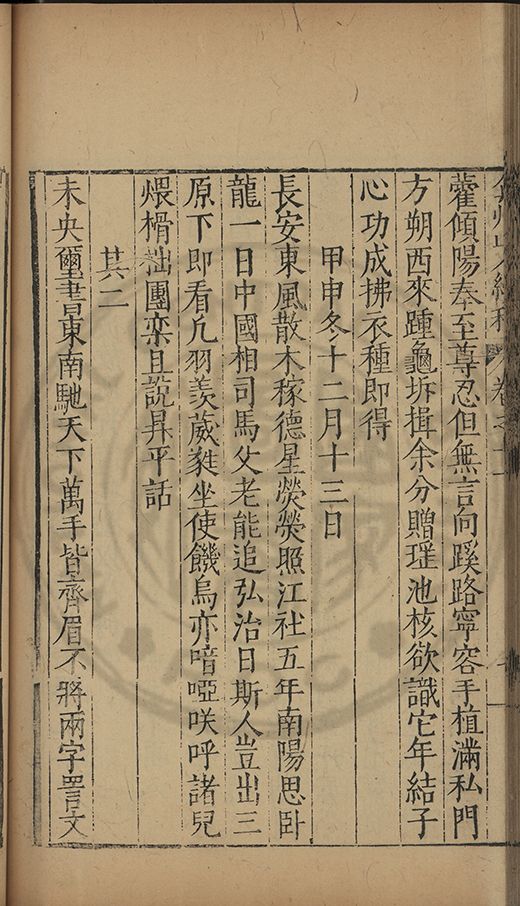 弇州山人續稿 卷之十一
藿傾陽奉至尊忍但無言向蹊路寧容手植滿私門
方朔西來踵龜坼揖余分贈瑶池核欲識它年結子
心功成拂衣種即得
甲申冬十二月十三日
長安東風散木稼德星熒熒照江社五年南陽思卧
龍一日中國相司馬父老能追弘治日斯人豈出三
原下即看凢羽羡葳蕤坐使饑烏亦喑啞咲呼諸兒
煨榾柮團欒且説昇平話
其二
未央璽書東南馳天下萬手皆齊眉不將兩字詈文